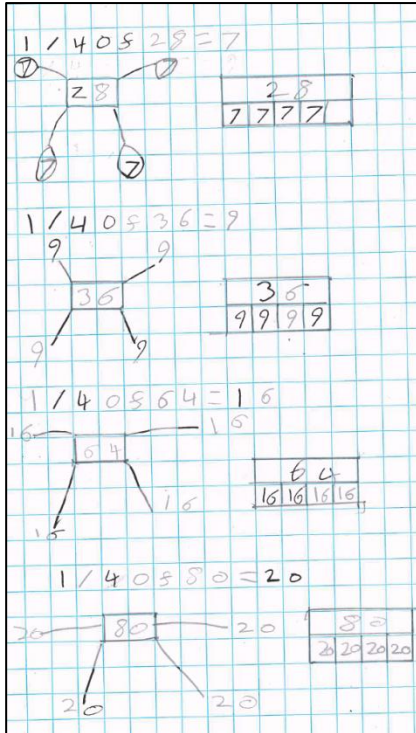 1/4 of 28 = 7
7 7
28
28
7 7 7 7
7 7
1/4 of 36 = 9
9 9
36
36
9 9 9 9
9 9
1/4 of 64 = 16
16 16
64
64
16 16 16 16
16 16
1/4 of 80 = 20
20 80 20
80
20 20 20 20
20 20